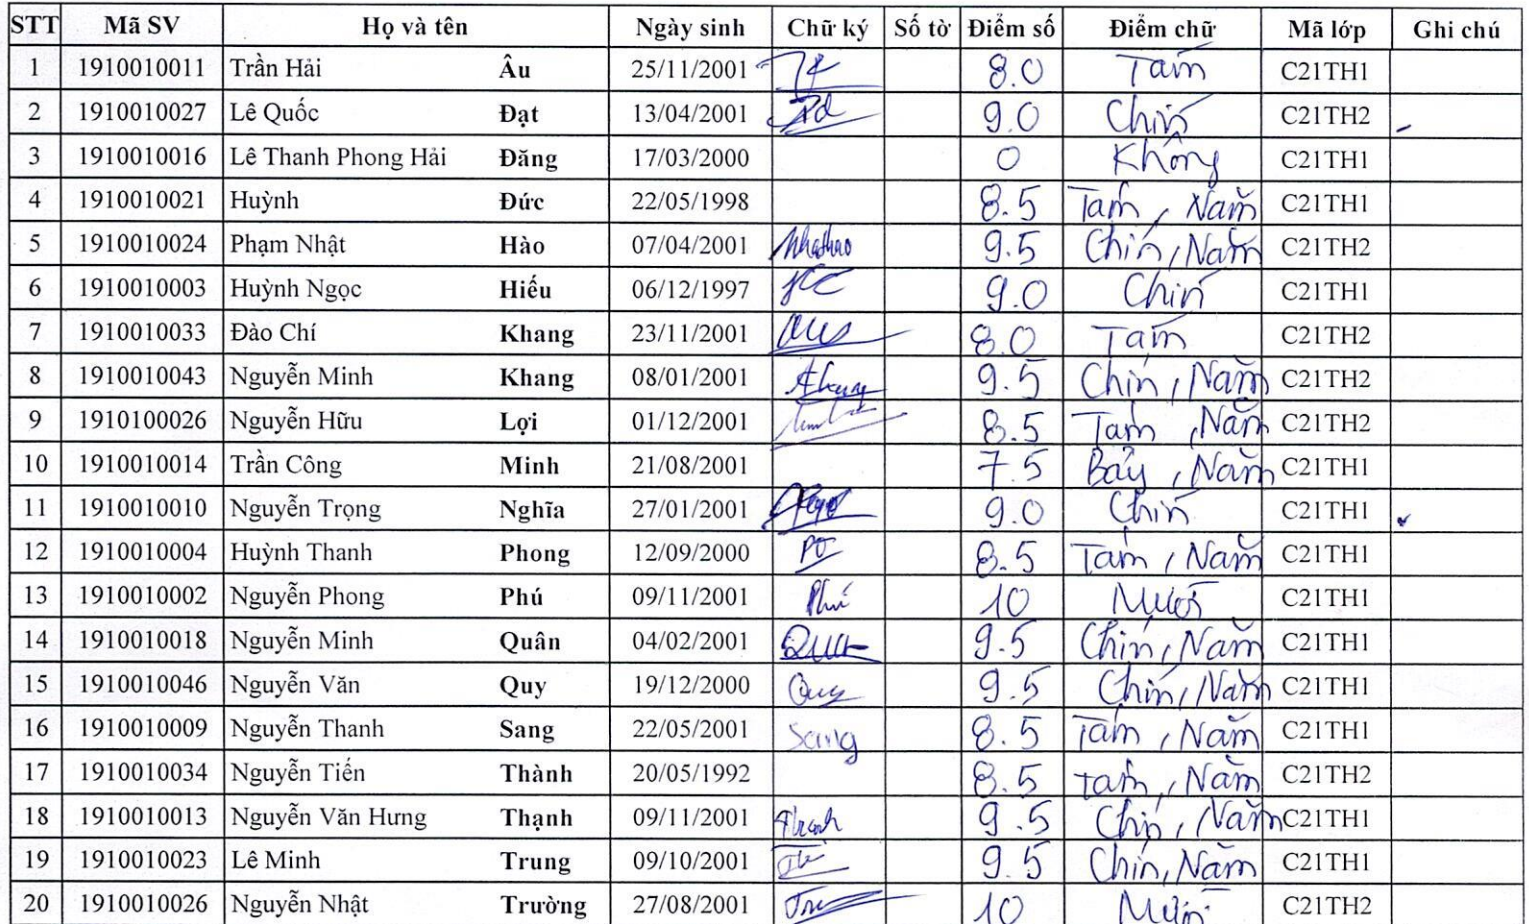 STT Mã SV Họ và tên Ngày sinh Chữ ký Số tờ Điểm số Điểm chữ Mã lớp Ghi chú
1 1910010011 Trần Hải Âu 25/11/2001 8.0 Tám C21TH1
2 1910010027 Lê Quốc Đạt 13/04/2001 9.0 Chín C21TH2
3 1910010016 Lê Thanh Phong Hải Đăng 17/03/2000 0 Không C21TH1
4 1910010021 Huỳnh Đức 22/05/1998 8.5 Tám, Năm C21TH1
5 1910010024 Phạm Nhật Hào 07/04/2001 Nhathao 9.5 Chín, Năm C21TH2
6 1910010003 Huỳnh Ngọc Hiếu 06/12/1997 9.0 Chín C21TH1
7 1910010033 Đào Chí Khang 23/11/2001 8.0 Tám C21TH2
8 1910010043 Nguyễn Minh Khang 08/01/2001 9.5 Chín, Năm C21TH2
9 1910100026 Nguyễn Hữu Lợi 01/12/2001 8.5 Tám, Năm C21TH2
10 1910010014 Trần Công Minh 21/08/2001 7.5 Bảy, Năm C21TH1
11 1910010010 Nguyễn Trọng Nghĩa 27/01/2001 9.0 Chín C21TH1
12 1910010004 Huỳnh Thanh Phong 12/09/2000 8.5 Tám, Năm C21TH1
13 1910010002 Nguyễn Phong Phú 09/11/2001 Phú 10 Mười C21TH1
14 1910010018 Nguyễn Minh Quân 04/02/2001 9.5 Chín, Năm C21TH1
15 1910010046 Nguyễn Văn Quy 19/12/2000 Quy 9.5 Chín, Năm C21TH1
16 1910010009 Nguyễn Thanh Sang 22/05/2001 Sang 8.5 Tám, Năm C21TH1
17 1910010034 Nguyễn Tiến Thành 20/05/1992 8.5 Tám, Năm C21TH2
18 1910010013 Nguyễn Văn Hưng Thạnh 09/11/2001 Thanh 9.5 Chín, Năm C21TH1
19 1910010023 Lê Minh Trung 09/10/2001 9.5 Chín, Năm C21TH1
20 1910010026 Nguyễn Nhật Trường 27/08/2001 10 Mười C21TH2